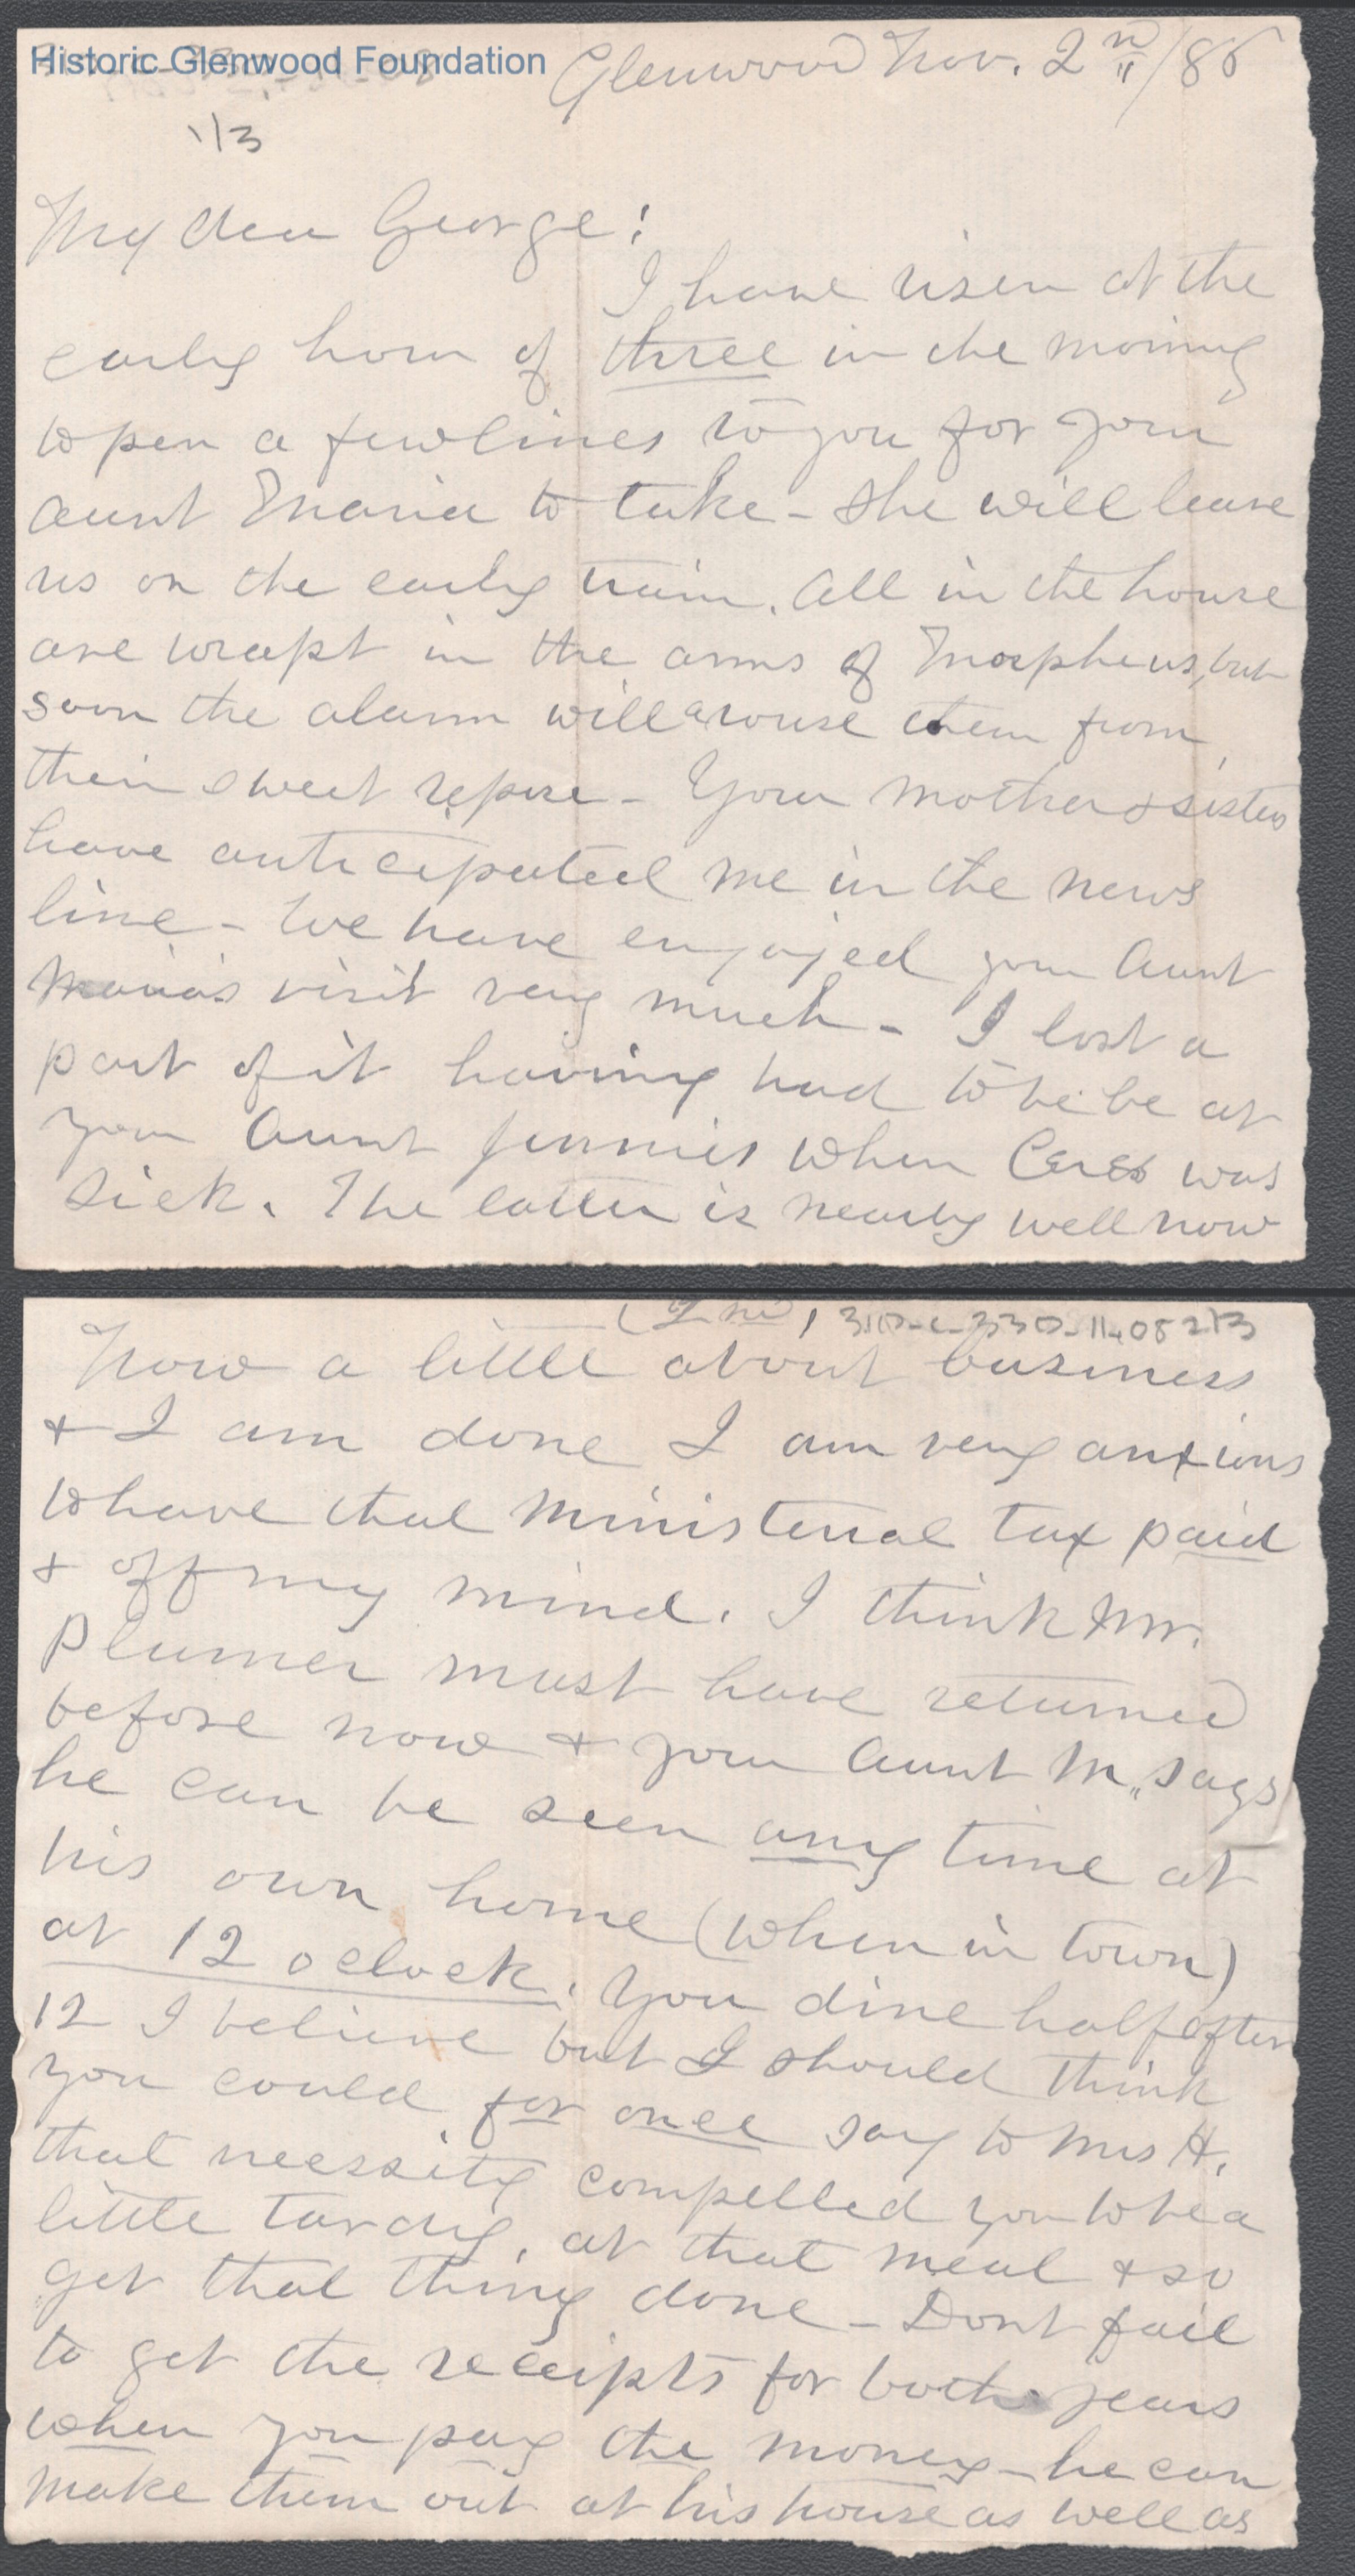 Historic Glenwood Foundation
Glenwood Nov. 2nd/86
1/3
My dear George:
I have risen at the
early hour of three in the morning
to pen a few lines to you for your
aunt Maria to take - She will leave
us on the early train. All in the house
are wrapt in the arms of Morpheus, but
soon the alarm will arouse them from
their sweet repose - Your mother & sisters
have anticipated me in the news
line - We have enjoyed your Aunt
Maria's visit very much - I lost a
part of it having had to be be at
your Aunt Jennies when was
sick. The latter is nearly well now
(2nd) 310-c-330-11.08 2/3
Now a little about business
& I am done I am very anxious
to have that Ministerial tax paid
& off my mind. I think Mr.
Plumer must have returned
before now & your Aunt M. says
he can be seen any time at
his own home (when in town)
at 12 oclock. You dine half after
12 I believe but I should think
you could for once say to Mrs H.
that necessity compelled you to be a
little tardy, at that meal & so
get that thing done - Dont fail
to get the receipts for both years
when you pay the money - he can
make them out at his house as well as